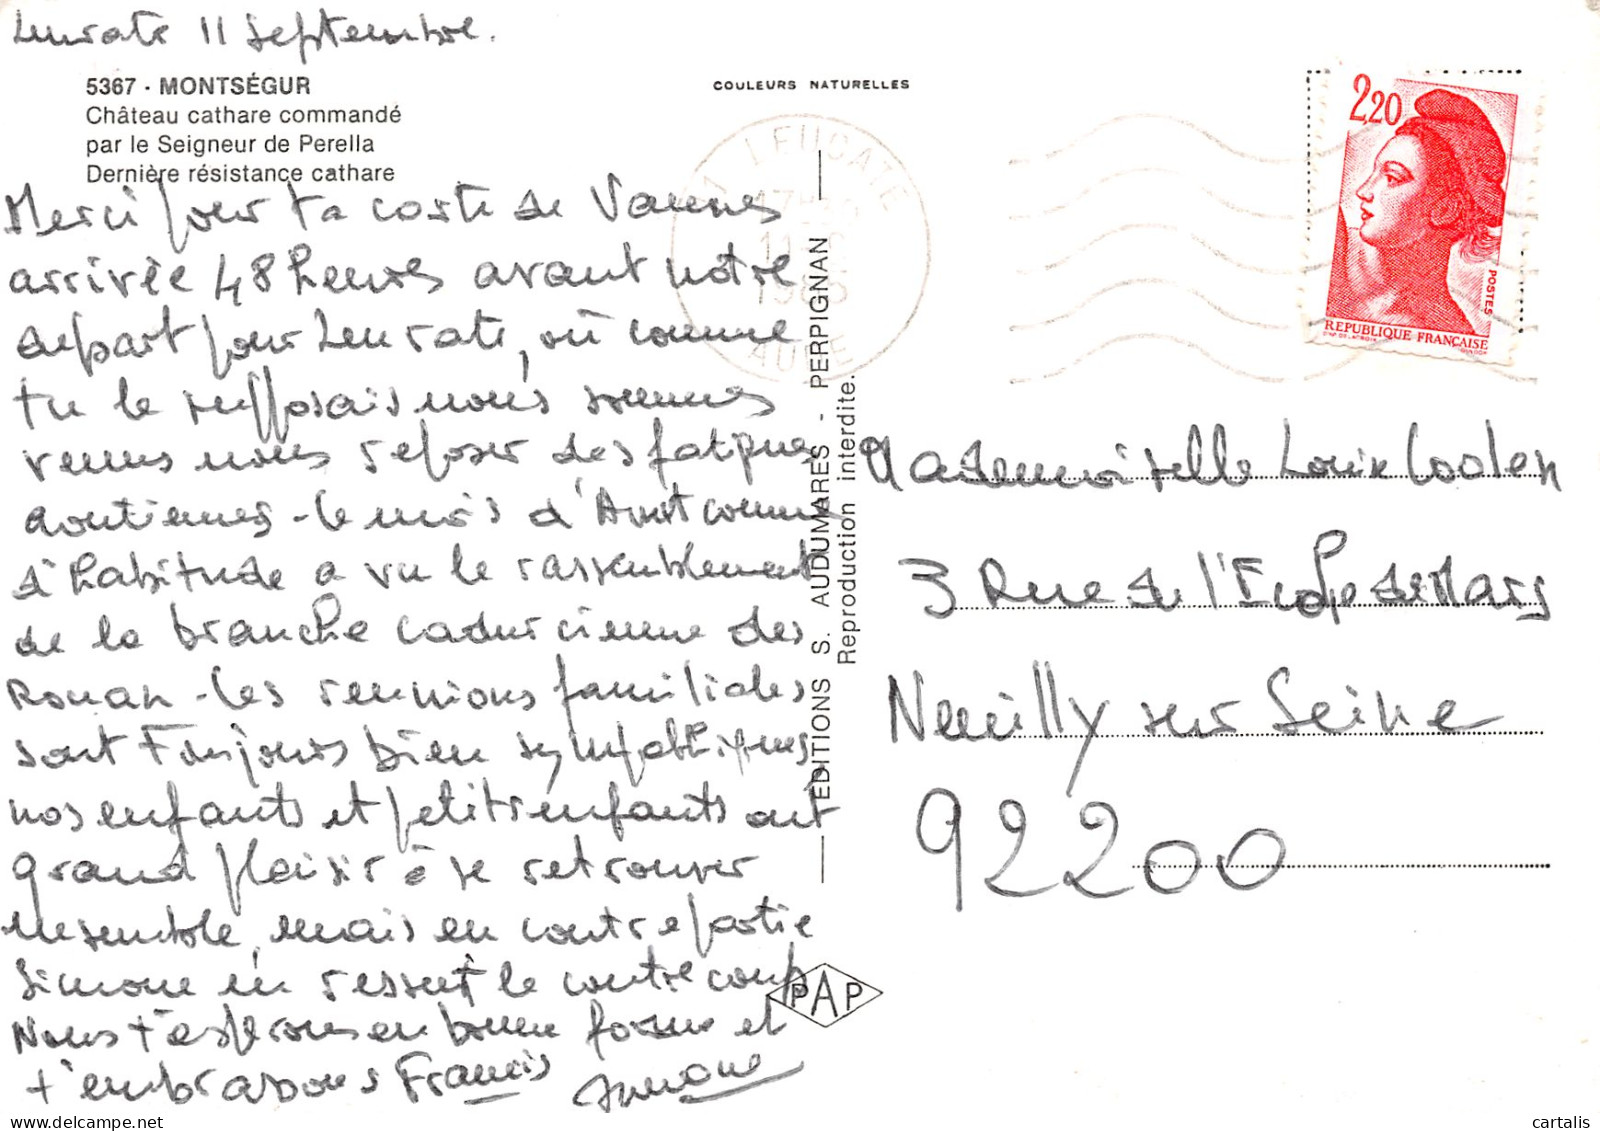 Leucate 11 Septembre.
5367 - MONTSÉGUR
Château cathare commandé
par le Seigneur de Perella
Dernière résistance cathare
COULEURS NATURELLES
Merci pour ta carte de Vannes
arrivée 48 heures avant notre
départ pour Leucate, où comme
tu le supposais nous sommes
venus nous reposer des fatigues
aoutiennes - le mois d'Aout comme
d'habitude a vu le rassemblement
de la branche cadurcienne des
Rouan - les reunions familiales
sont toujours bien sympathiques
nos enfants et petits enfants ont
grand plaisir à se retrouver
ensemble, mais en contrepartie
Simone en ressent le contre coup
Nous t'esperons en bonne forme et
t'embrassons Francis Simone
LEUCATE
AUDE
EDITIONS S. AUDUMARES - PERPIGNAN
Reproduction interdite.
PAP
2,20
POSTES
REPUBLIQUE FRANÇAISE
Mademoiselle
3 Rue de l'Ecole de Mars
Neuilly sur Seine
92200
cartalis